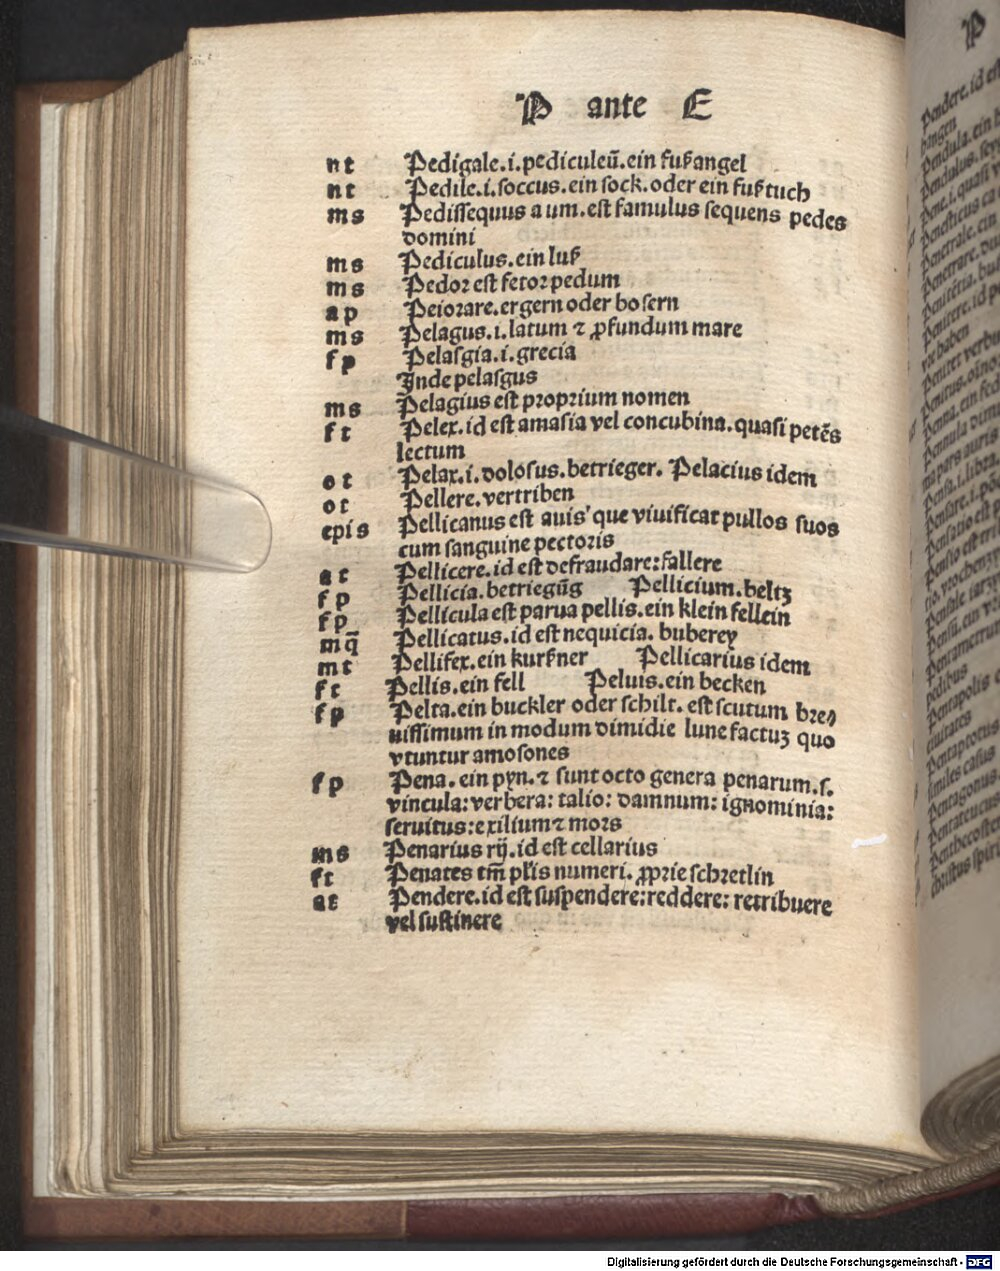 P ante E
nt Pedigale.i.pediculeū.ein fußangel
nt Pedile.i.soccus.ein sock.oder ein fußtuch
ms Pedissequus a um.est famulus sequens pedes
domini
ms Pediculus.ein luß
ms Pedor est fetor pedum
ap Peiorare.ergern oder bosern
ms Pelagus.i.latum ⁊ ꝓfundum mare
fp Pelasgia.i.grecia
Inde pelasgus
ms Pelagius est proprium nomen
ft Pelex.id est amasia vel concubina.quasi petēs
lectum
ot Pelax.i.dolosus.betrieger. Pelacius idem
ot Pellere.vertriben
epis Pellicanus est auis' que viuificat pullos suos
cum sanguine pectoris
at Pellicere.id est defraudare:fallere
fp Pellicia.betriegūg Pellicium.beltz
fp Pellicula est parua pellis.ein klein fellein
mq̄ Pellicatus.id est nequicia. buberey
mt Pellifex.ein kurßner Pellicarius idem
ft Pellis.ein fell Peluis.ein becken
fp Pelta.ein buckler oder schilt. est scutum bre⸗
uissimum in modum dimidie lune factuꝫ quo
vtuntur amosones
fp Pena.ein pyn.⁊ sunt octo genera penarum.s.
vincula:verbera:talio:damnum:ignominia:
seruitus:exilium ⁊ mors
ms Penarius rij.id est cellarius
ft Penates tm̄ pl̄is numeri.ꝓprie schretlin
at Pendere.id est suspendere:reddere:retribuere
vel sustinere
P
Pendere.id est
hangen
Digitalisierung gefördert durch die Deutsche Forschungsgemeinschaft - DFG